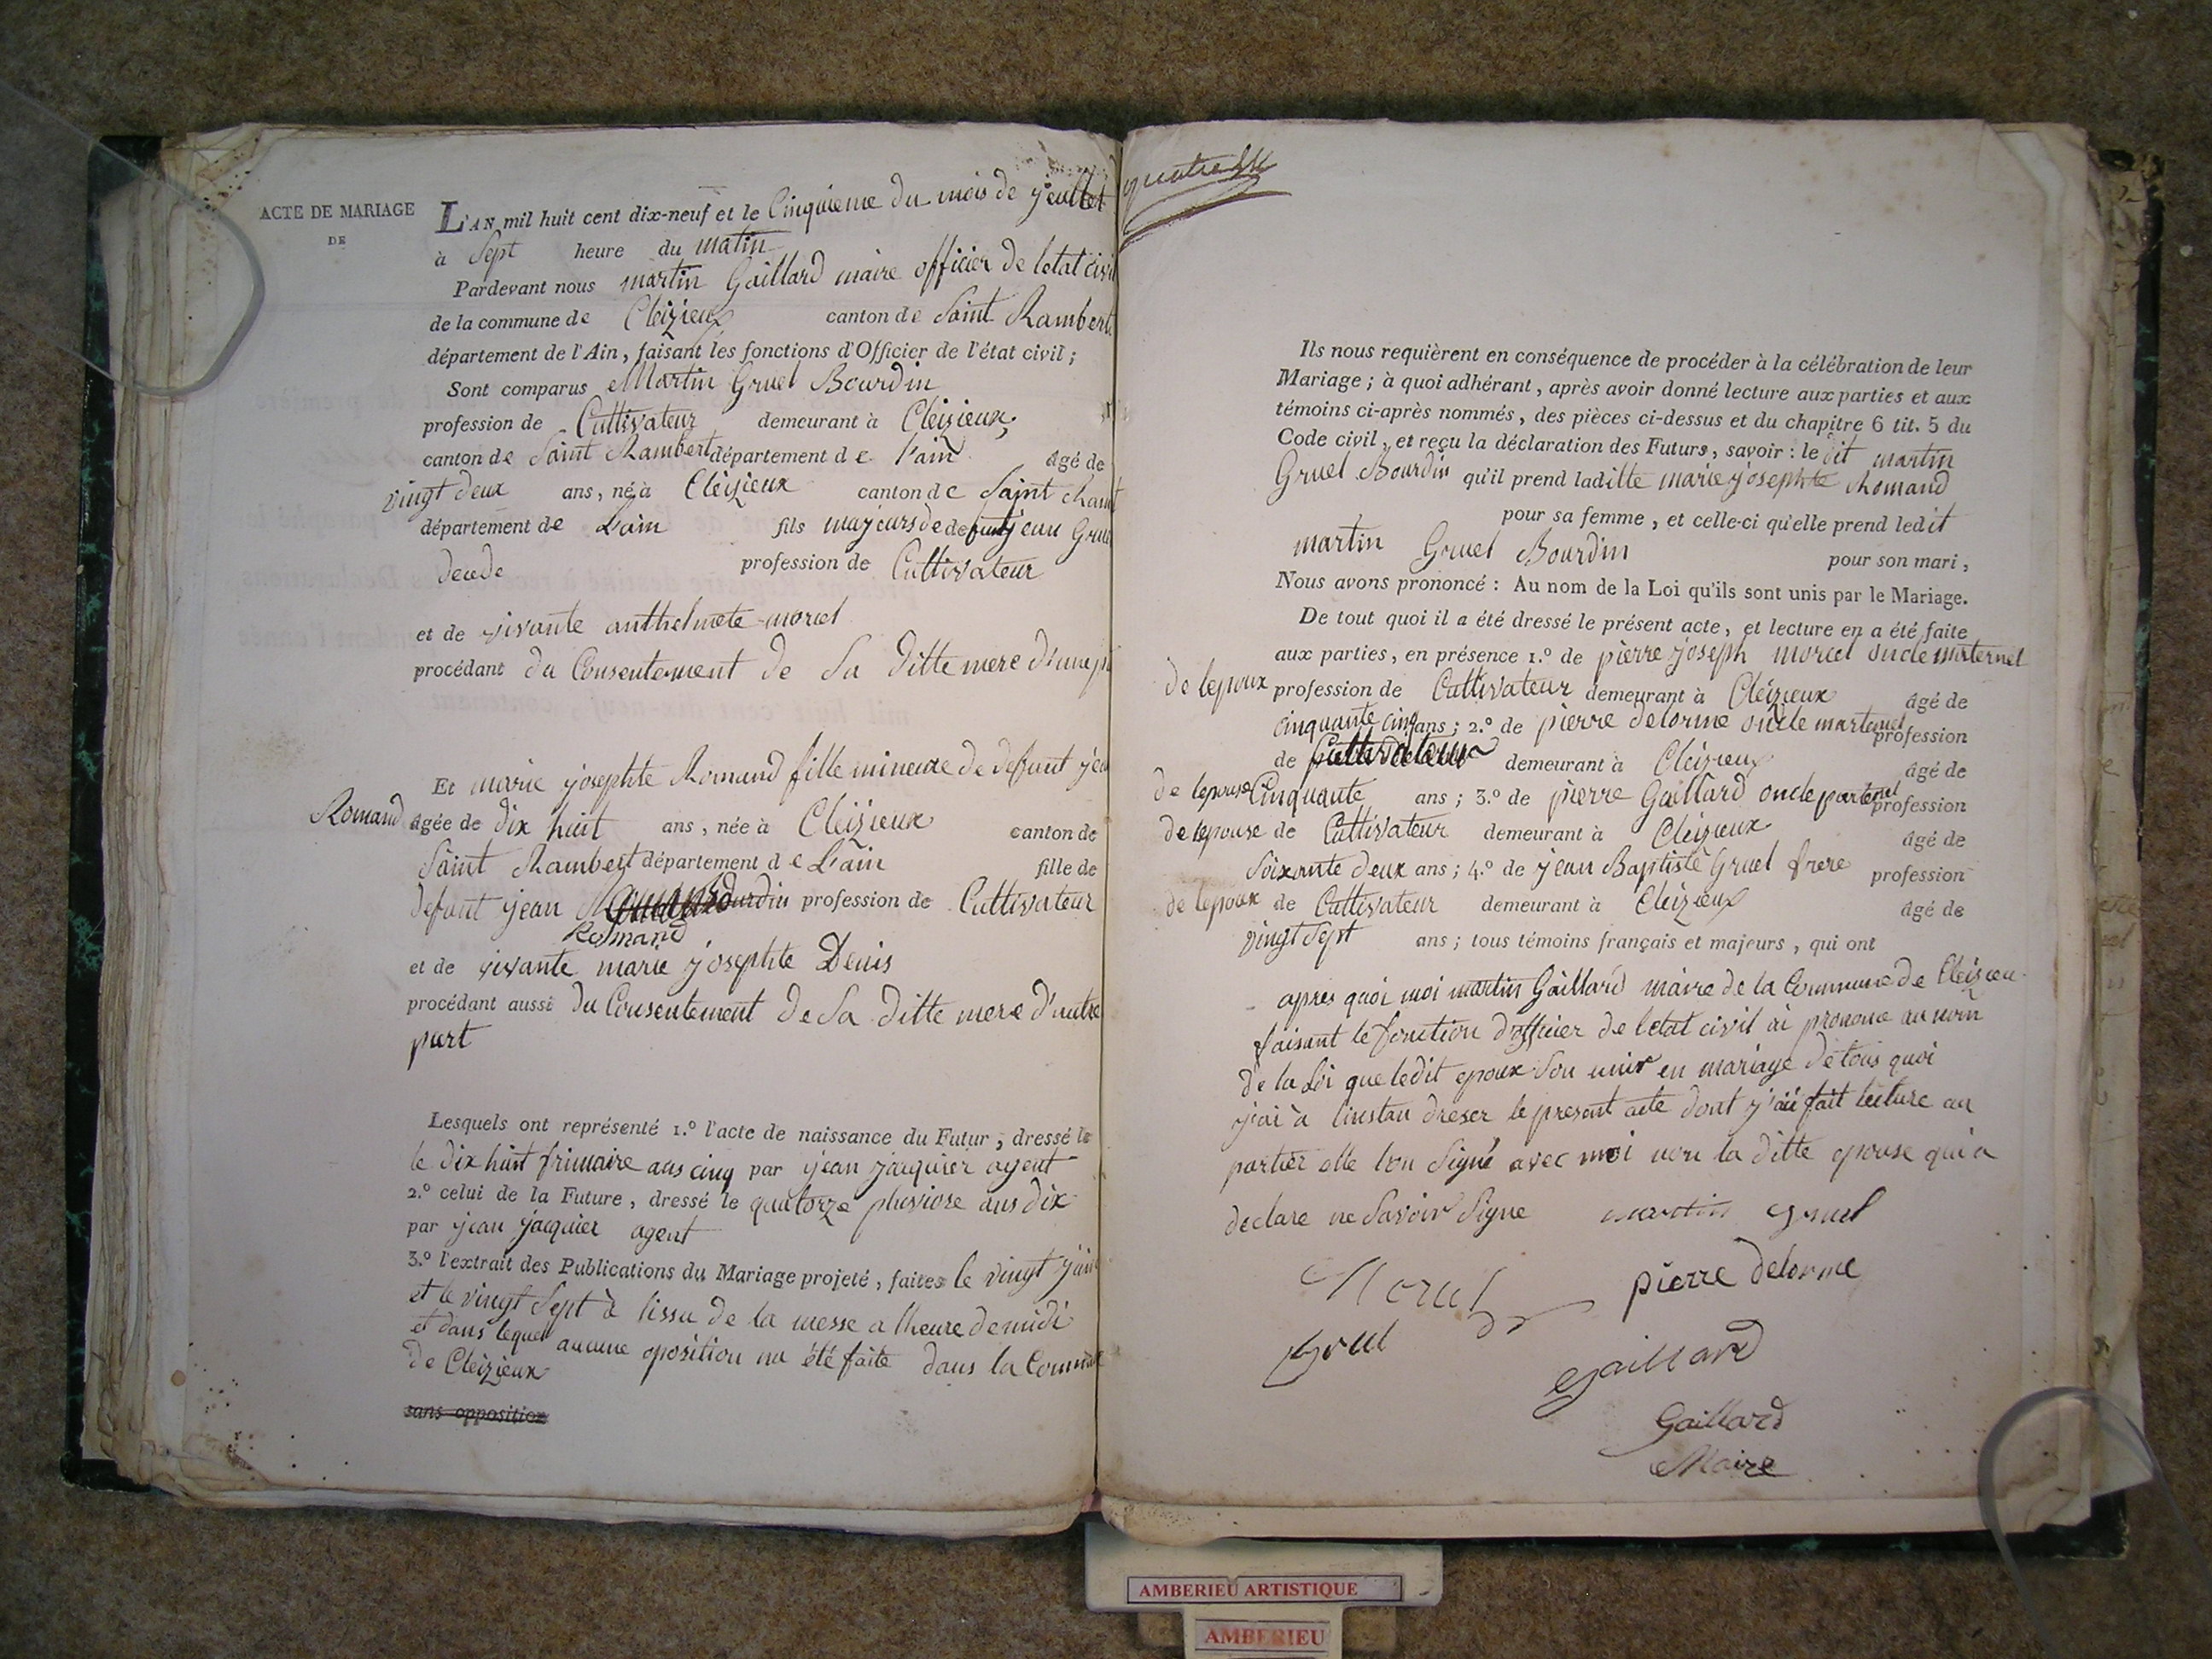 ACTE DE MARIAGE
DE
L'AN mil huit cent dix-neuf et le Cinquieme du mois de jeullet
à Sept heure du matin
Pardevant nous martin Gaillard maire officier de letat civil
de la commune de Cleizieux canton de Saint Rambert
département de l'Ain, faisant les fonctions d'Officier de l'état civil ;
Sont comparus Martin Gruel Bourdin
profession de Cultivateur demeurant à Cleizieux,
canton de Saint Rambert département de l'ain âgé de
vingt deux ans, né à Cleizieux canton de Saint Ramb
département de L'ain fils majeurs de defunt jean Gruel
profession de Cultivateur
et de vivante anthelmete morel
procédant du Consentement de Sa ditte mere d'une p
Et marie josephte Romand fille mineure de defunt jea
Romand âgée de dix huit ans, née à Cleizieux canton de
Saint Rambert département de L'ain fille de
defunt jean profession de Cultivateur
Romand
et de vivante marie josephte Denis
procédant aussi du Consentement de Sa ditte mere d'autre
part
Lesquels ont représenté 1.º l'acte de naissance du Futur, dressé le
le dix huit frimaire ans cinq par jean jacquier agent
2.º celui de la Future, dressé le quatorze pluviose ans dix
par jean jacquier agent
3.º l'extrait des Publications du Mariage projeté, faites le vingt juin
et le vingt Sept à lissu de la messe a lheure de midi
et dans lequel aucune oposition na été faite dans la Commune
de Cleizieux
sans opposition
quatre
Ils nous requièrent en conséquence de procéder à la célébration de leur
Mariage ; à quoi adhérant, après avoir donné lecture aux parties et aux
témoins ci-après nommés, des pièces ci-dessus et du chapitre 6 tit. 5 du
Code civil, et reçu la déclaration des Futurs, savoir : le dit martin
Gruel Bourdin qu'il prend laditte marie josephte Romand
pour sa femme, et celle-ci qu'elle prend ledit
martin Gruel Bourdin pour son mari,
Nous avons prononcé : Au nom de la Loi qu'ils sont unis par le Mariage.
De tout quoi il a été dressé le présent acte, et lecture en a été faite
aux parties, en présence 1.º de pierre joseph morel oncle maternel
de lepoux profession de Cultivateur demeurant à Cleizieux âgé de
cinquante cinq ans ; 2.º de pierre delorme oncle marternel profession
de Cultivateur demeurant à Cleizieux âgé de
de lepouse Cinquante ans ; 3.º de pierre Gaillard oncle paternel profession
de lepouse de Cultivateur demeurant à Cleizieux âgé de
Soixante deux ans ; 4.º de jean Baptiste Gruel frere profession
de lepoux de Cultivateur demeurant à Cleizieux âgé de
vingt Sept ans ; tous témoins français et majeurs, qui ont
apres quoi moi martin Gaillard maire de la Commune de Cleizieu
faisant le fonction d'officier de letat civil ai prononce au nom
de la Loi que ledit epoux Son unir en mariage de tous quoi
jai à linstan dreser le present acte dont j'ai fait lecture au
partier elle lon Signé avec moi non la ditte epouse qui a
declare ne Savoir Signe martin gruel
Morel pierre delorme
Gruel gaillard
Gaillard
Maire
AMBERIEU ARTISTIQUE
AMBERIEU